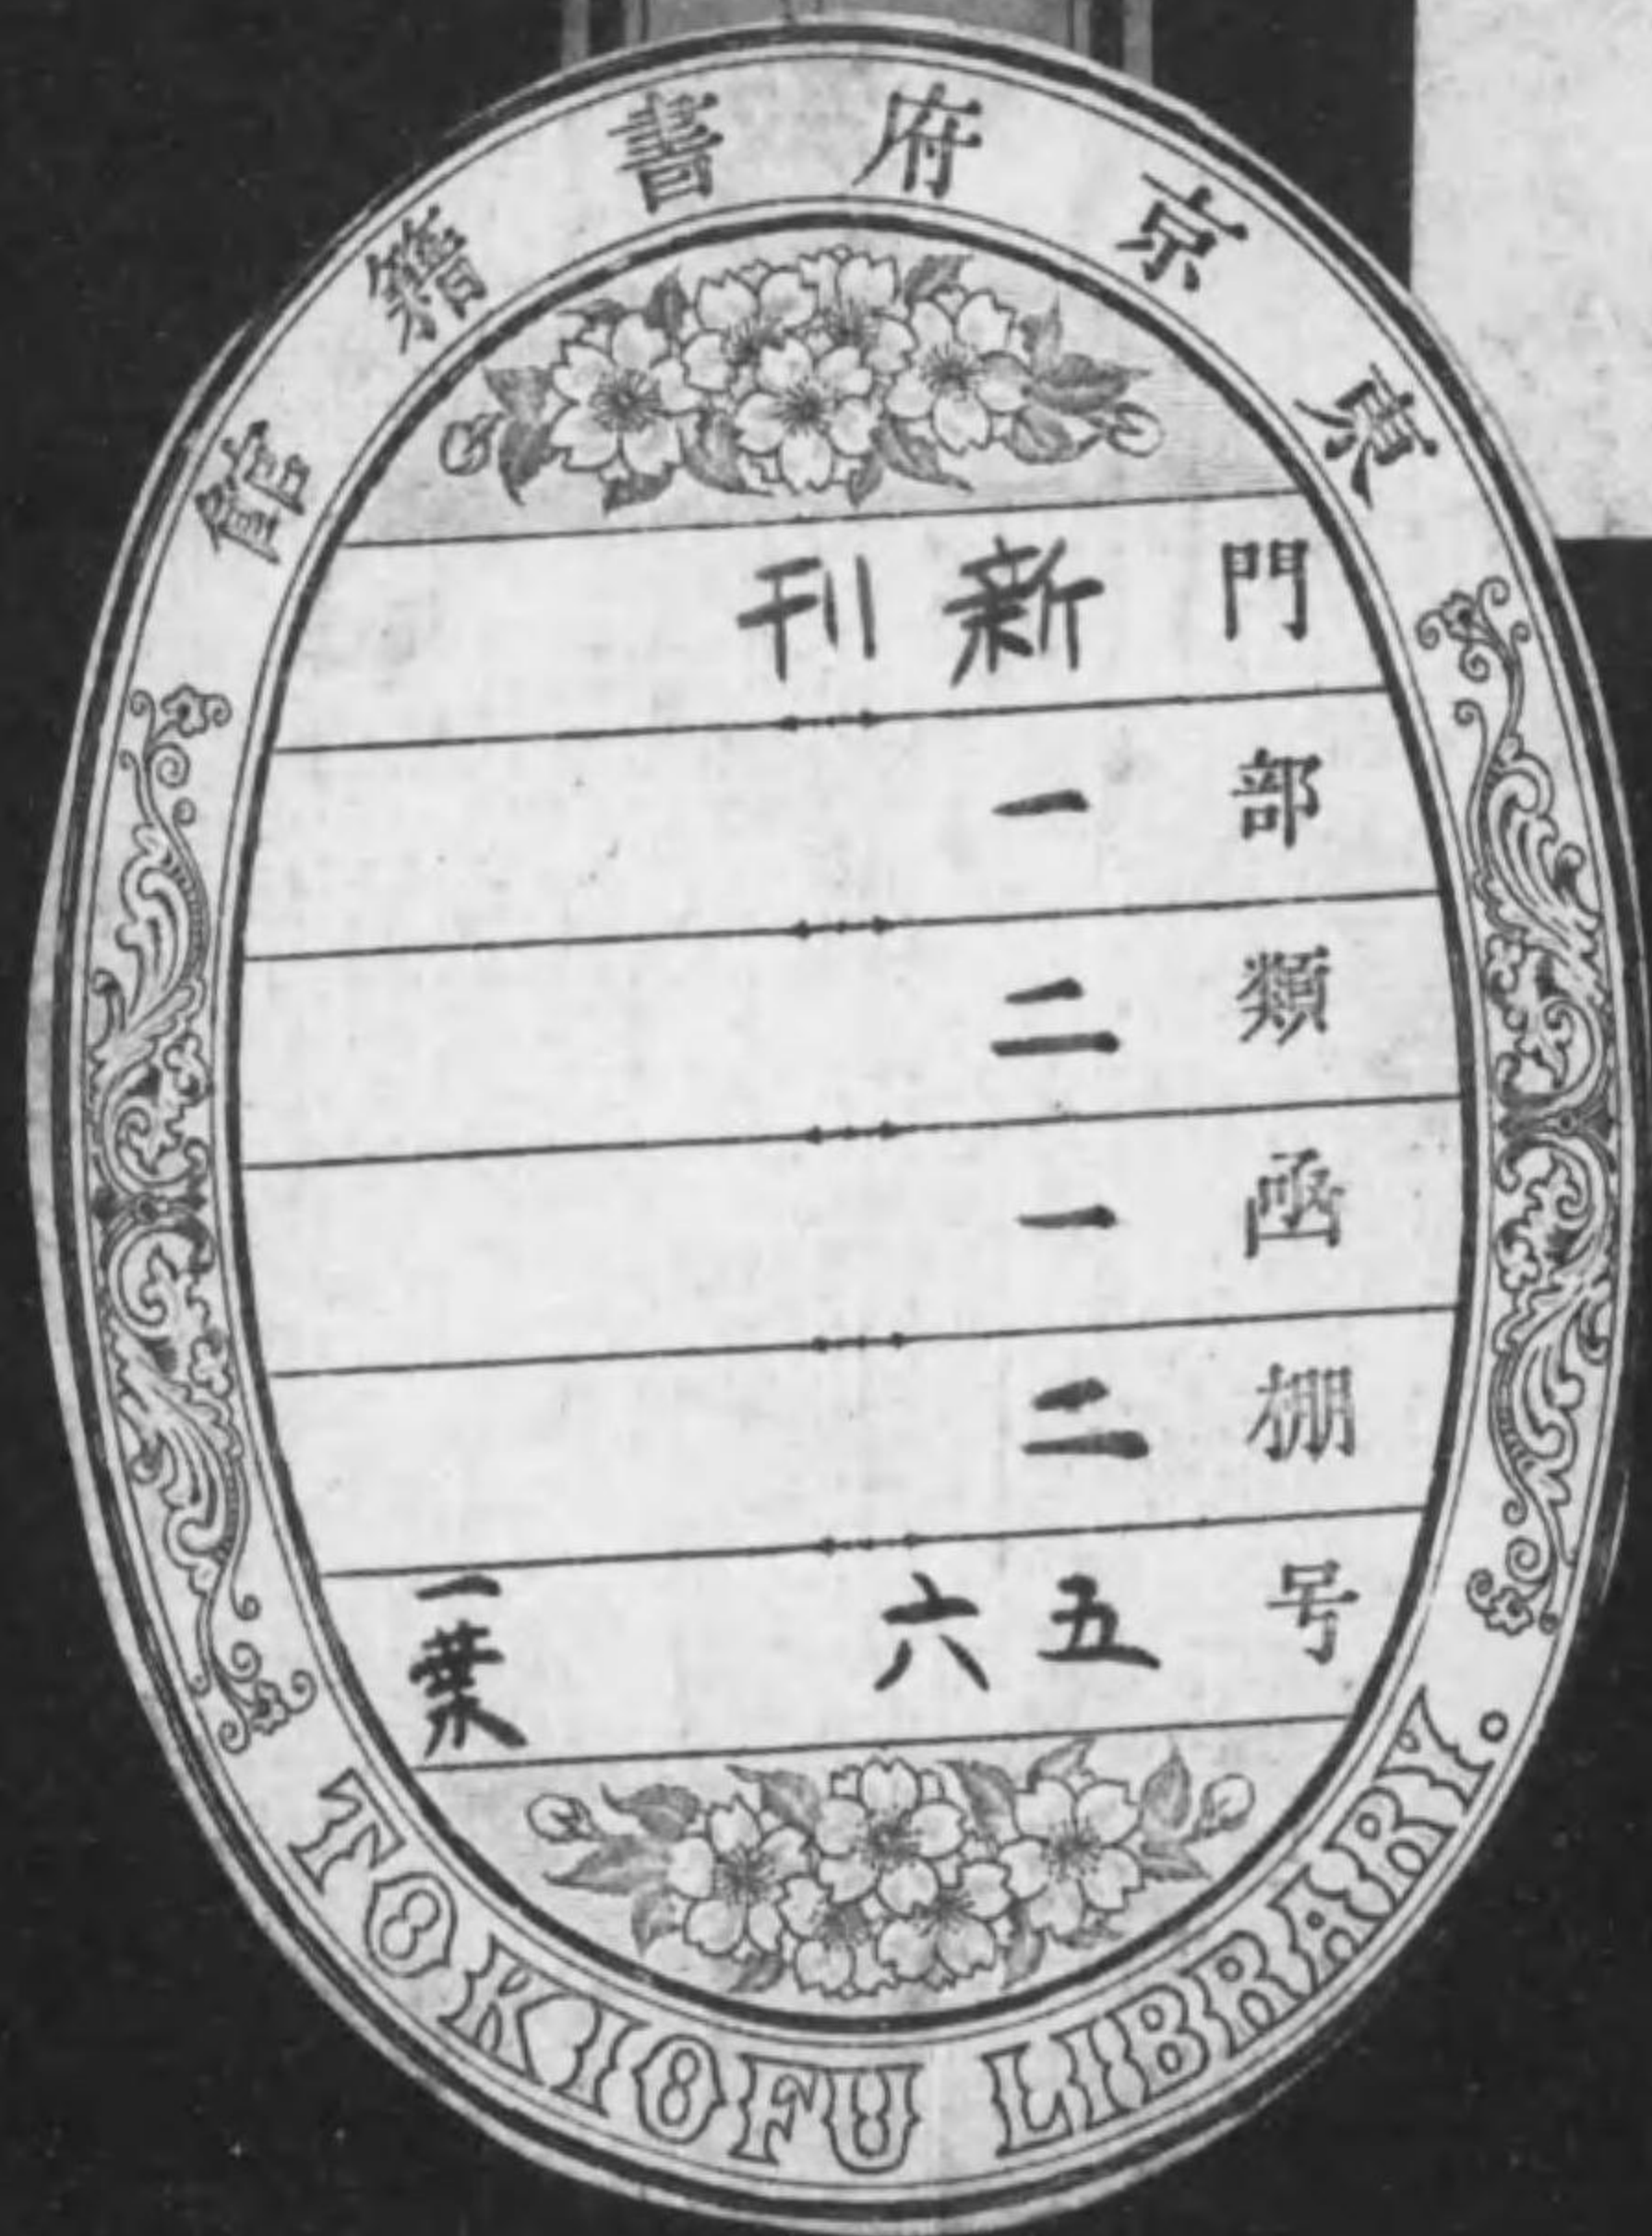 東京府書籍館
門 新刊
部 一
類 二
函 一
棚 二
号 五六 一葉
TOKIOFU LIBRARY.